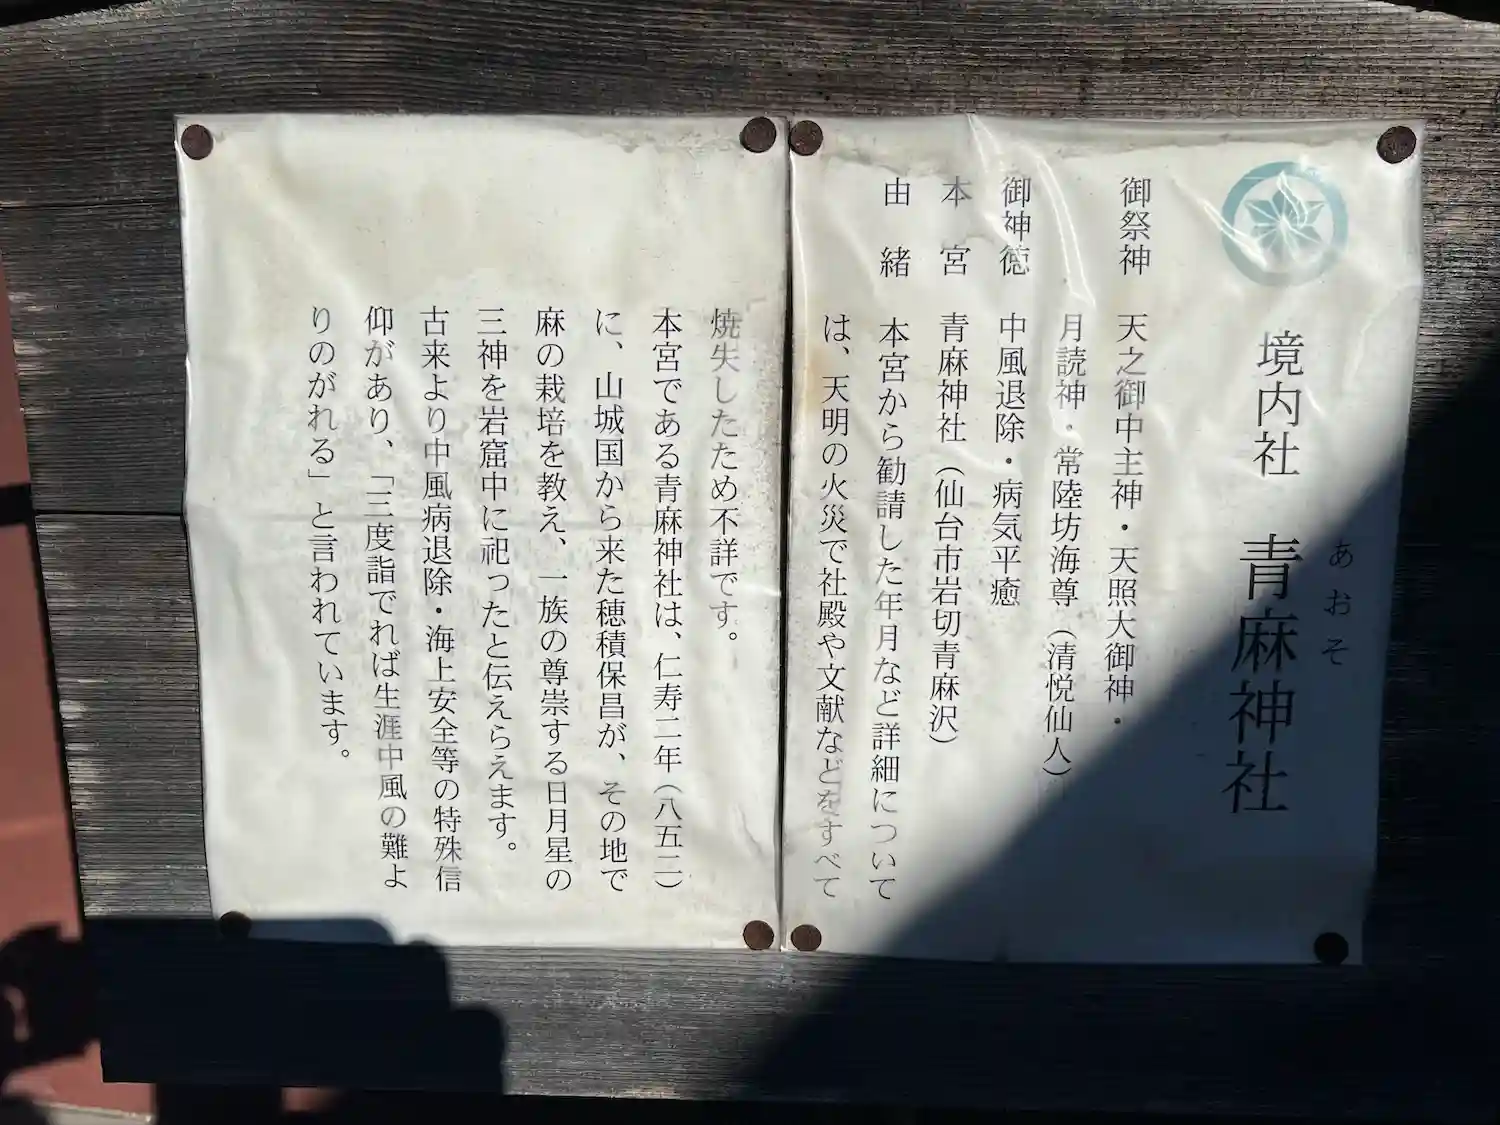 境内社 青麻神社
あおそ
御祭神 天之御中主神・天照大御神・
月読神・常陸坊海尊（清悦仙人）
御神徳 中風退除・病気平癒
本宮 青麻神社（仙台市岩切青麻沢）
由緒 本宮から勧請した年月など詳細について
は、天明の火災で社殿や文献などをすべて
焼失したため不詳です。
本宮である青麻神社は、仁寿二年（八五二）
に、山城国から来た穂積保昌が、その地で
麻の栽培を教え、一族の尊崇する日月星の
三神を岩窟中に祀ったと伝えらえます。
古来より中風病退除・海上安全等の特殊信
仰があり、「三度詣でれば生涯中風の難よ
りのがれる」と言われています。